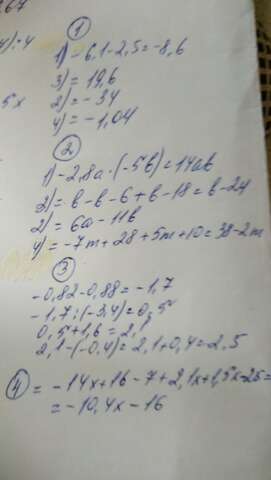 267
4):4
5x
①
1) -6,1-2,5=-8,6
3) = 19,6
2) = -34
4) = -1,04
②
1) -2,8a·(-5b)=14ab
3) = b-b-6+b-18=b-24
2) = 6a-11b
4) = -7m+28+5m+10=38-2m
③
-0,82-0,88=-1,7
-1,7:(-3,4)=0,5
0,5+1,6=2,1
2,1-(-0,4)=2,1+0,4=2,5
④ = -14x+16-7+2,1x+1,5x-25=
= -10,4x-16